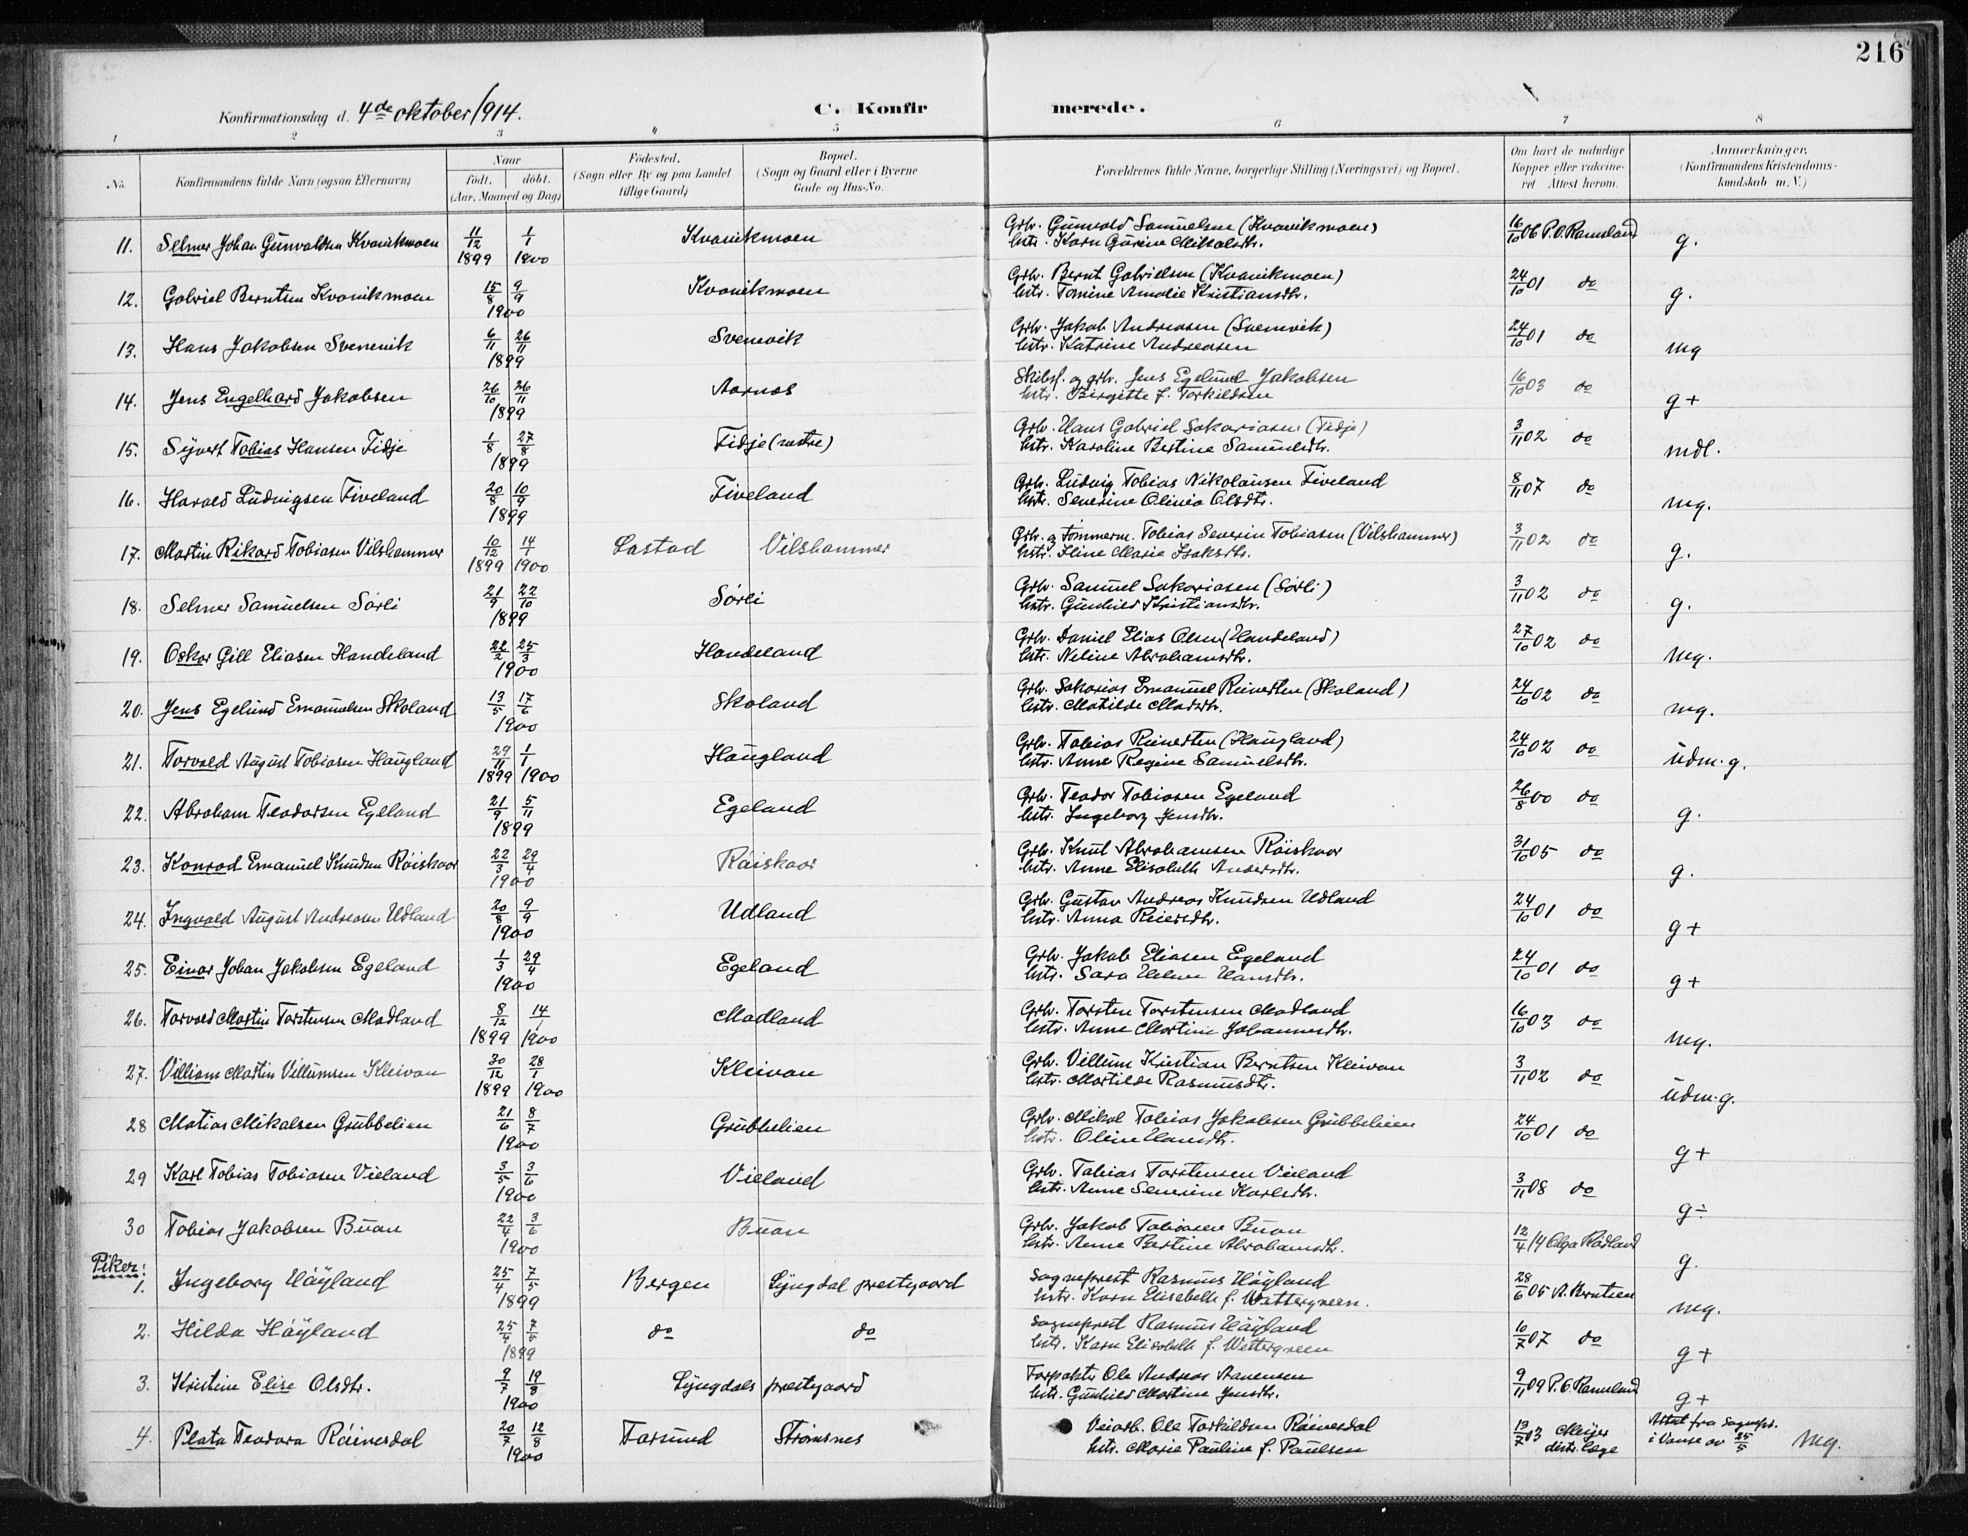 216
Konfirmationsdag d. 4de oktober 1914.
C. Konfirmerede.
1 2 3 4 5 6 7 8
No. Konfirmandens fulde Navn (ogsaa Efternavn)
Naar
født. døbt.
(Aar, Maaned og Dag)
Fødested.
(Sogn eller By og paa Landet
tillige Gaard)
Bopæl.
(Sogn og Gaard eller i Byerne
Gade og Hus-No.
Forældrenes fulde Navne, borgerlige Stilling (Næringsvei) og Bopæl.
Om havt de naturlige
Kopper eller vakcine-
ret Attest herom.
Anmærkninger.
(Konfirmandens Kristendoms-
kundskab m. V.)
11. Selmer Johan Gunvaldsen Kvanikmoen 11/12 1899 1/1 1900 Kvanikmoen Grbr. Gunvald Samuelsen (Kvanikmoen) 16/10 06 P.O. Ramsland g.
hstr. Karn Gurine Mikalsdtr.
12. Gabriel Berntsen Kvanikmoen 15/8 9/9 1900 Kvanikmoen Grbr. Bernt Gabrielsen (Kvanikmoen) 24/10 01 do g.
hstr. Tomine Amalie Kristiansdtr.
13. Hans Jakobsen Svenevik 6/11 26/11 1899 Svenevik Grbr. Jakob Andreasen (Svenevik) 24/10 01 do mg
hstr. Katrine Andreasen
14. Jens Engelhard Jakobsen 26/10 26/11 1899 Aarnes Skibsf. og grbr. Jens Egelund Jakobsen 16/10 03 do g+
hstr. Birgitte f. Torkildsen
15. Syvert Tobias Hansen Fidje 1/8 27/8 1899 Fidje (østre) Grbr. Hans Gabriel Sakariasen (Fidje) 3/11 02 do mdl.
hstr. Karoline Bertine Samuelsdtr.
16. Harald Ludvigsen Fiveland 20/8 10/9 1899 Fiveland Grbr. Ludvig Tobias Nikolausen Fiveland 8/11 07 do mg.
hstr. Severine Olivia Olsdtr.
17. Martin Rikard Tobiasen Vilshammer 10/12 1899 14/1 1900 Lastad Vilshammer Grbr. og tømmerm. Tobias Severin Tobiasen (Vilshammer) 3/11 02 do g.
hstr. Eline Marie Isaksdtr.
18. Selmer Samuelsen Sørli 21/9 22/10 1899 Sørli Grbr. Samuel Sakariasen (Sørli) 3/11 02 do g.
hstr. Gunhild Kristiansdtr.
19. Oskar Gill Eliasen Handeland 22/2 25/3 1900 Handeland Grbr. Daniel Elias Olsen (Handeland) 27/10 02 do mg.
hstr. Neline Abrahamsdtr.
20. Jens Egelund Emanuelsen Skoland 13/5 17/6 1900 Skoland Grbr. Sakarias Emanuel Reinertsen (Skoland) 24/10 02 do mg.
hstr. Matilde Madsdtr.
21. Torvald August Tobiasen Haugland 29/11 1899 1/1 1900 Haugland Grbr. Tobias Reinertsen (Haugland) 24/10 02 do udm. g.
hstr. Anne Regine Samuelsdtr.
22. Abraham Teodorsen Egeland 21/9 5/11 1899 Egeland Grbr. Teodor Tobiasen Egeland 26/8 00 do g.
hstr. Ingeborg Jensdtr.
23. Konrad Emanuel Knudsen Røiskaar 22/3 29/4 1900 Røiskaar Grbr. Knut Abrahamsen Røiskaar 31/10 05 do g.
hstr. Anne Elisabeth Andersdtr.
24. Ingvald August Andreasen Udland 20/8 9/9 1900 Udland Grbr. Gustav Andreas Knudsen Udland 24/10 01 do g+
hstr. Anna Reiersdtr.
25. Einar Johan Jakobsen Egeland 1/3 29/4 1900 Egeland Grbr. Jakob Eliasen Egeland 24/10 01 do g+
hstr. Sara Helene Hansdtr.
26. Torvald Martin Torstensen Madland 8/12 1899 14/1 1900 Madland Grbr. Torsten Torstensen Madland 16/10 03 do mg.
hstr. Anne Martine Johannesdtr.
27. Villiam Martin Villumsen Kleivan 30/12 1899 28/1 1900 Kleivan Grbr. Villum Kristian Berntsen Kleivan 3/11 02 do udm. g.
hstr. Martilde Rasmusdtr.
28 Matias Mikalsen Grubbelien 21/6 8/7 1900 Grubbelien Grbr. Mikal Tobias Jakobsen Grubbelien 24/10 01 do g+
hstr. Oline Hansdtr.
29 Karl Tobias Tobiasen Vieland 3/5 3/6 1900 Vieland Grbr. Tobias Torstensen Vieland 3/11 08 do g÷
hstr. Anne Severine Karlsdtr.
30 Tobias Jakobsen Buan 22/4 3/6 1900 Buan Grbr. Jakob Tobiasen Buan 12/4 14 Olga Rødland g.
hstr. Anne Bertine Abrahamsdtr.
Piker:
1. Ingeborg Høyland 25/4 7/5 1899 Bergen Lyngdal prestgaard Sogneprest Rasmus Høyland 28/6 05 A. Berntsen mg.
hstr. Karn Elisabeth f. Wettergreen.
2. Hilda Høyland 25/4 7/5 1899 do do Sogneprest Rasmus Høyland 10/7 07 do g+
hstr. Karn Elisabeth f. Wettergreen
3. Kristine Elise Olsdtr. 9/7 19/8 1900 Lyngdals prestgaard Forpaktr Ole Andreas Aanensen 9/11 09 P.O. Ramsland g+
hstr. Gunhild Martine Jensdtr.
4. Plata Teodora Røinesdal 20/7 12/8 1900 Farsund Strømsnes Veiarb. Ole Torkildsen Røinesdal 13/7 03 Meyer distr. læge Attest fra sognepr. i Vanse av 25/5 mg.
hstr. Marie Pauline f. Paulsen